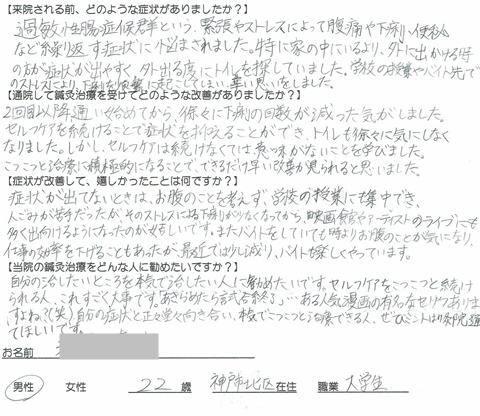 【来院される前、どのような症状がありましたか?】
過敏性腸症候群という、緊張やストレスによって腹痛や下痢、便秘
など繰り返す症状に悩まされました。特に家の中にいるより、外に出かける時
の方が症状が出やすく、外出る度にトイレを探していました。学校の授業やバイト先で
のストレスにより下痢を頻繁に起こしてしまい、辛い思いをしました。
【通院して鍼灸治療を受けてどのような改善がありましたか?】
2回目以降通い始めてから、徐々に下痢の回数が減った気がしました。
セルフケアを続けることで症状を抑えることができ、トイレも徐々に気にしなく
なりました。しかし、セルフケアは続けなくては意味がないことを学びました。
こつこつと治療に積極的になることで、できるだけ早い改善が見られると思いました。
【症状が改善して、嬉しかったことは何ですか?】
症状が出てないときは、お腹のことを考えず、学校の授業にも集中でき、
人ごみが苦手だったが、そのストレスによる下痢がなくなってから、映画館やアーティストのライブにも
多く出向けるようになったのが嬉しいです。またバイトをしていても時よりお腹のことが気になり、
仕事の効率を下げることもあったが、最近では少し減り、バイトも楽しくやっています。
【当院の鍼灸治療をどんな人に勧めたいですか?】
自分の治したいところを本気で治したい人に勧めたいです。セルフケアをこつこつと続けら
れる人、これすごく大事です。あきらめたら試合終了。ある人気漫画の有名なセリフありま
すよね?(笑)自分の症状と正々堂々向き合い、本気でこつこつと治療できる人、ぜひミントはり灸院通っ
てほしいです。
お名前
男性 女性 22 歳 神戸市北区 在住 職業 大学生